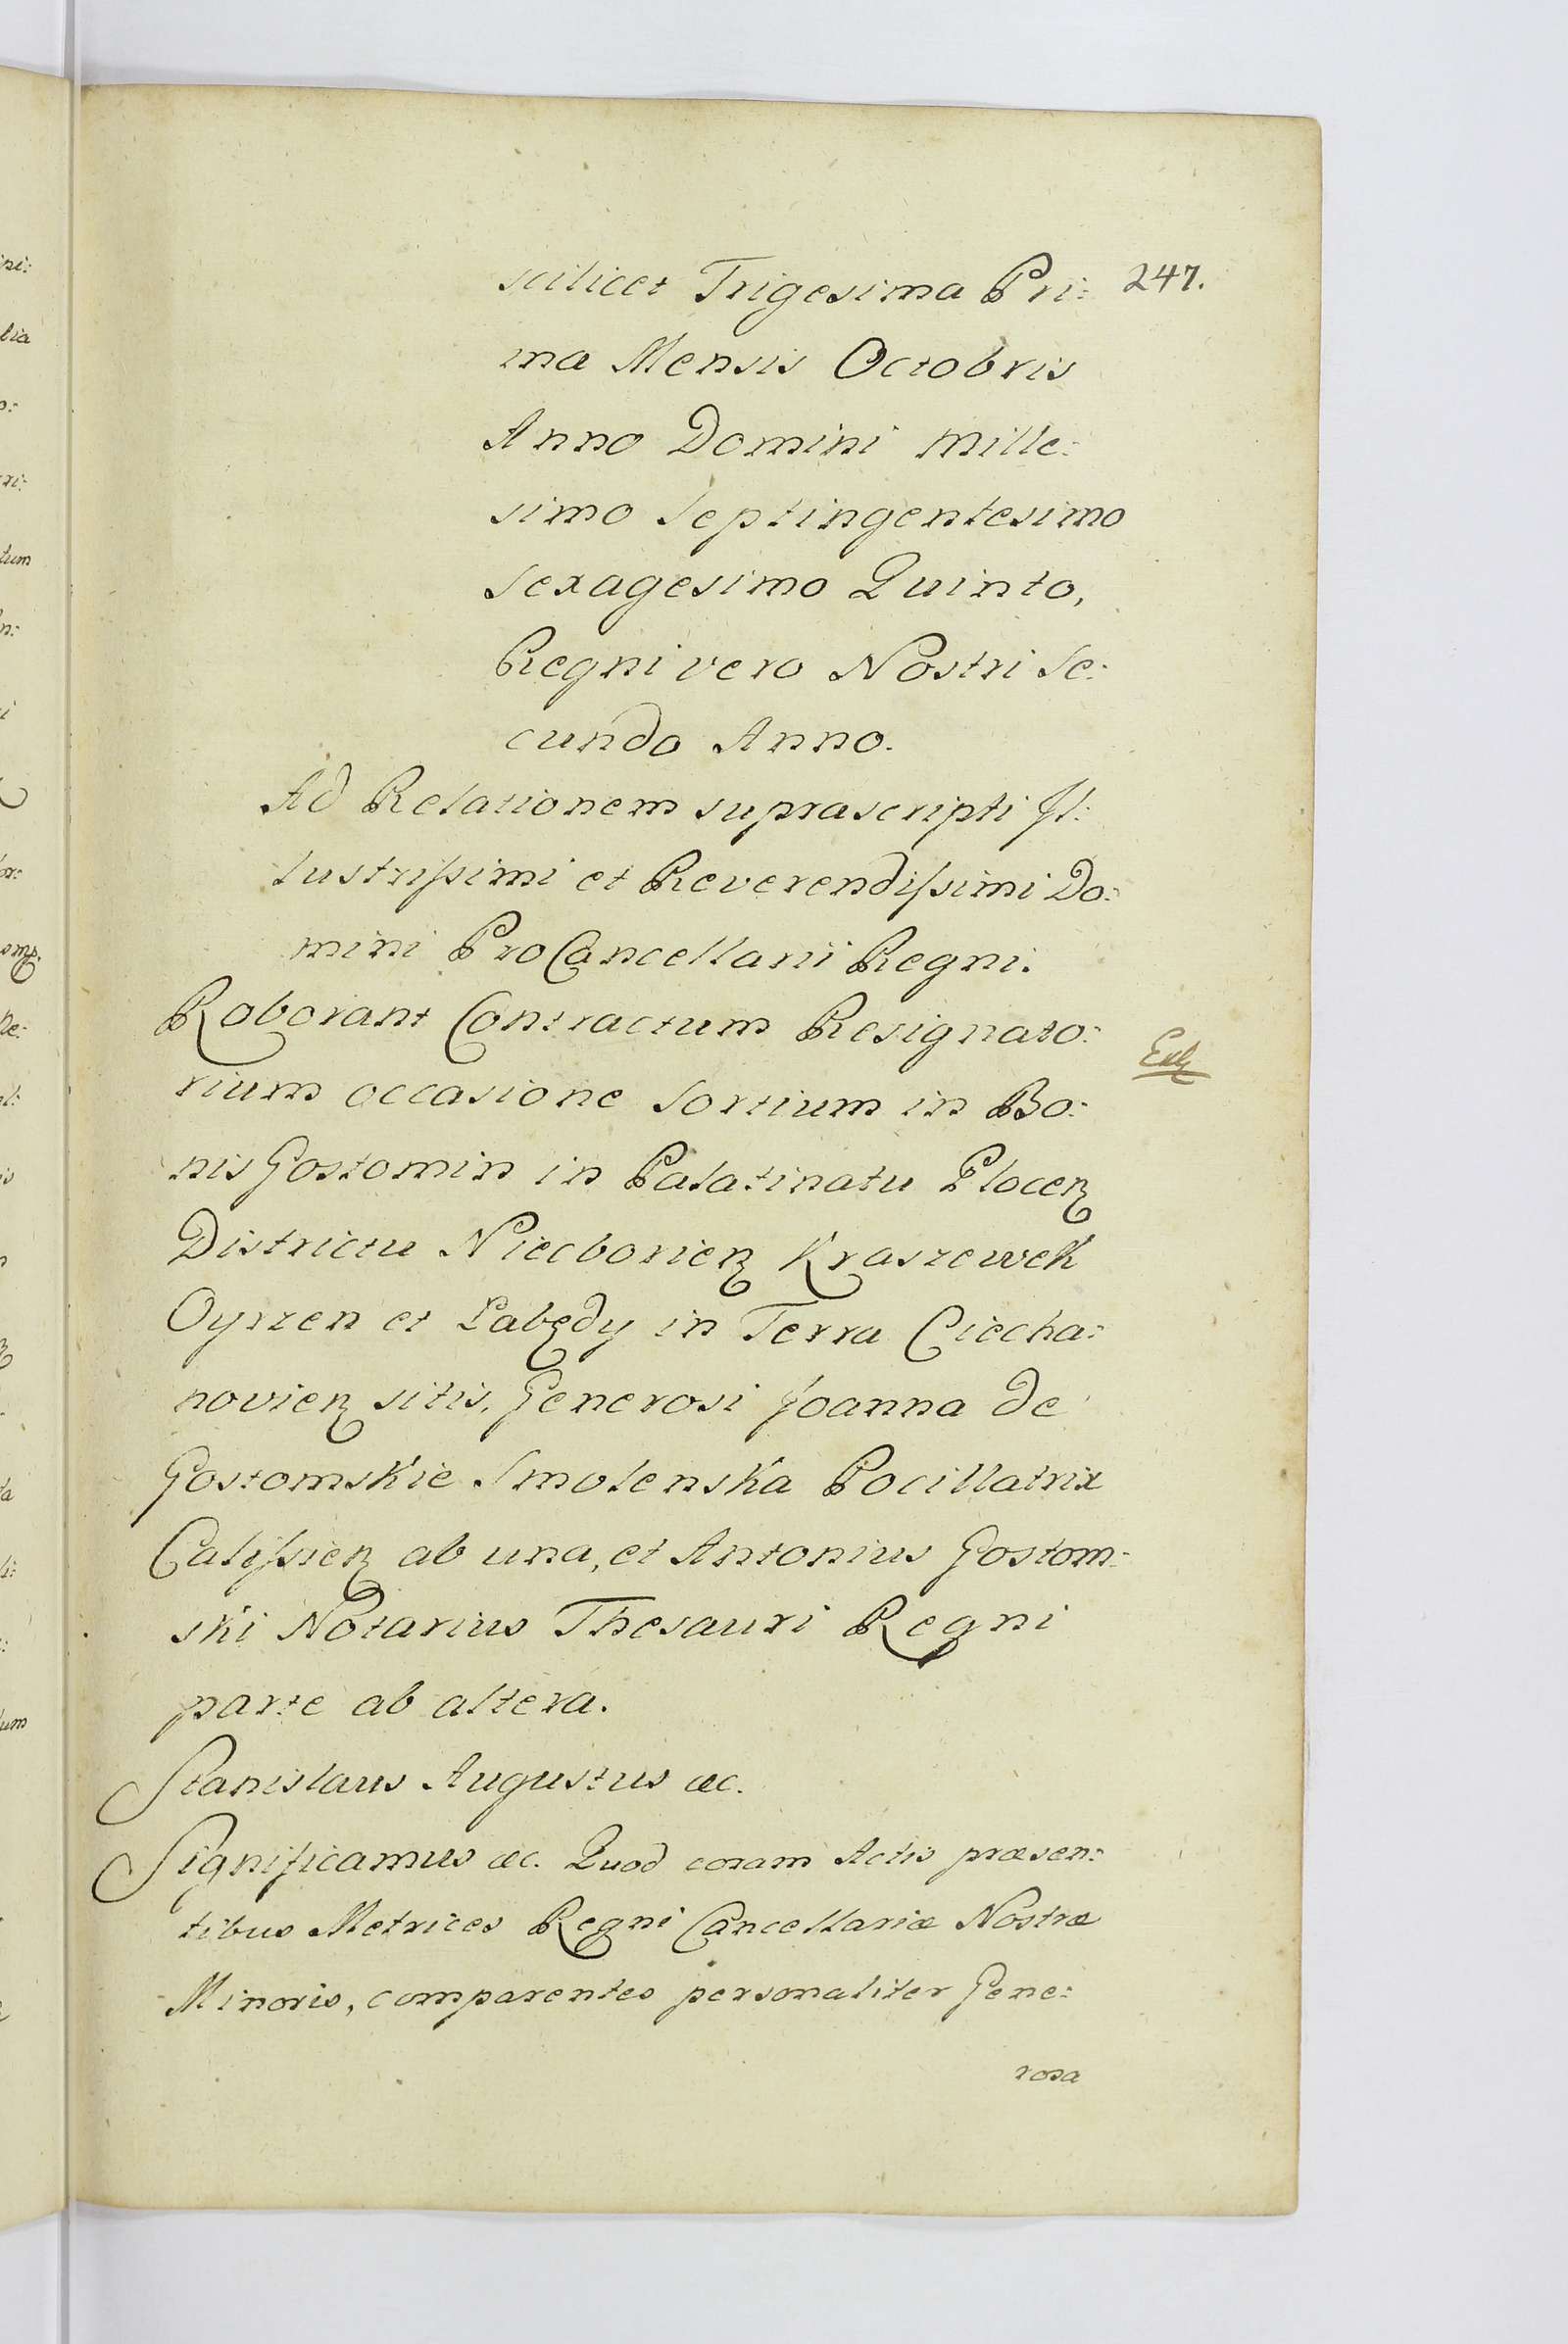 247.
scilicet Trigesima Pri:
ma Mensis Octobris
Anno Domini Mille:
simo Septingentesimo
Sexagesimo Quinto,
Regni vero Nostri Se:
cundo Anno.
Ad Relationem suprascripti Il:
lustrissimi et Reverendissimi Do:
mini ProCancellarii Regni.
Roborant Contractum Resignato:
rium occasione Sortium in Bo:
nis Gostomin in Palatinatu Plocen
Districtu Niecborien Kraszewek
Oyrzen et Łabędy in Terra Ciecha:
novien sitis, Generosi Joanna de
Gostomskie Smolenska Pocillatrix
Calissien ab una, et Antonius Gostom:
ski Notarius Thesauri Regni
parte ab altera.
Stanislaus Augustus &c.
Significamus &c. Quod coram Actis præsen:
tibus Metrices Regni Cancellariæ Nostræ
Minoris, comparentes personaliter Gene:
rosa